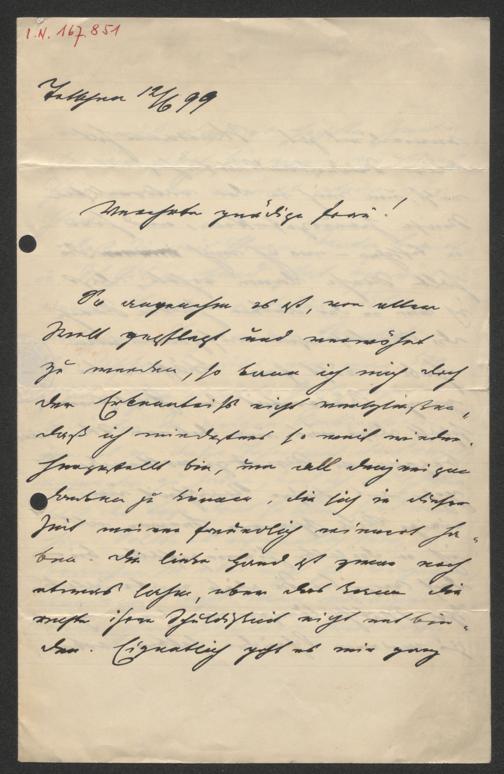 I.N. 167.851
12/6 99
Verehrte gnädige Frau!
So angenehm es ist, von allen
Welt gepflegt und verwöhnt
zu werden, so kann ich mich doch
der Erkenntniß nicht verschließen,
daß ich mindestens so weit wieder-
hergestellt bin, um all denjenigen
danken zu können, die sich in dieser
Zeit meiner freundlich erinnert ha-
ben. Die linke Hand ist zwar noch
etwas lahm, aber das kann die
rechte ihrer Schuldigkeit nicht entbin-
den. Eigentlich geht es mir ganz